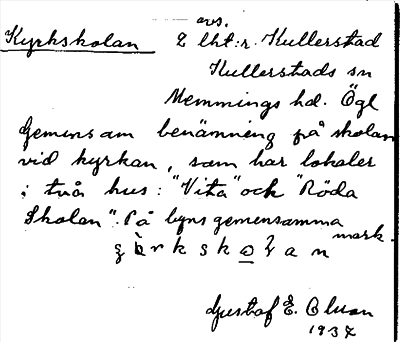 avs.
Kyrkskolan 2 lht:r. Kullerstad
Kullerstads sn
Memmings hd. Ögl
Gemensam benämning på skolan
vid kyrkan, som har lokaler
i två hus: "Vita" och "Röda
Skolan". På byns gemensamma
mark.
k s k a n
Gustaf E. Olsson
1937